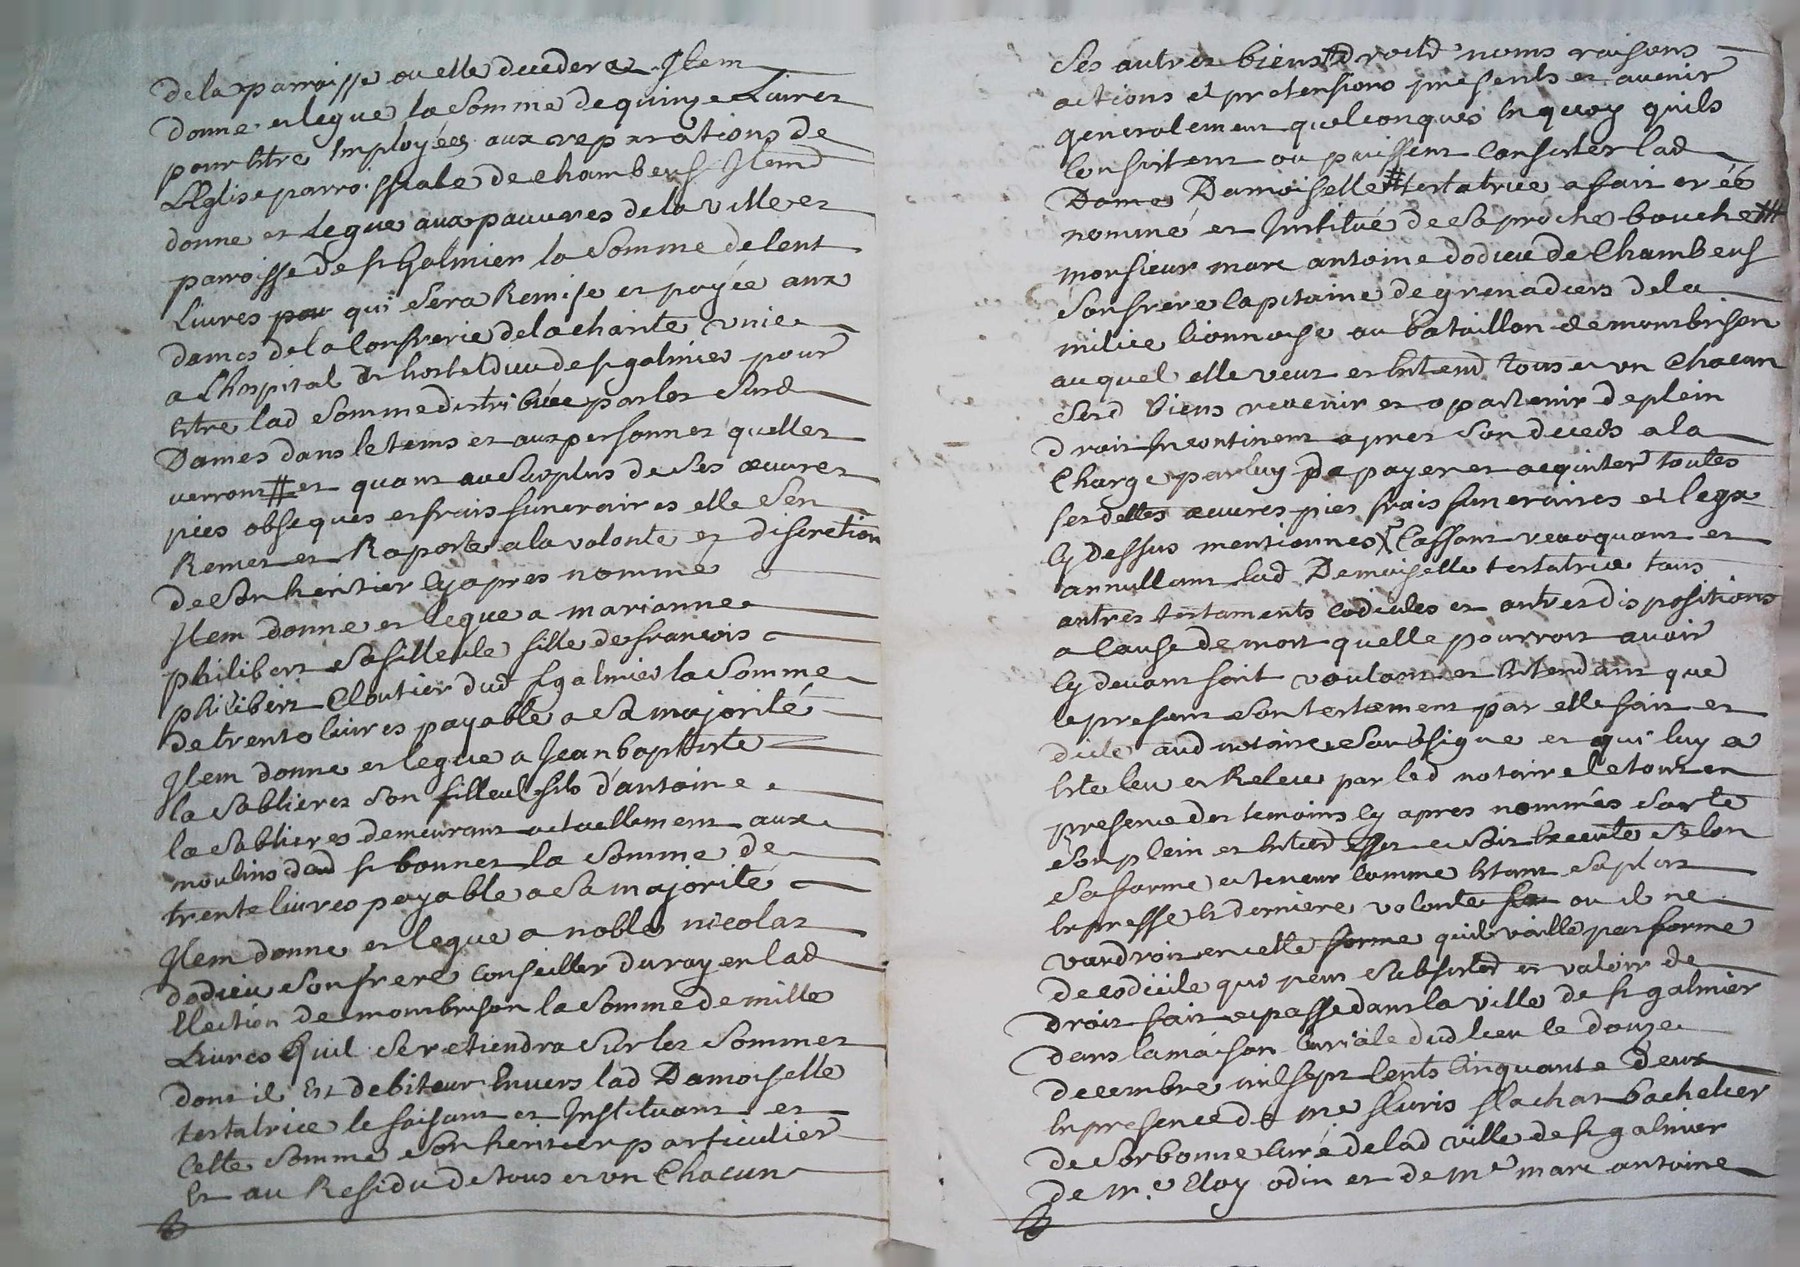 de la parroisse ou elle decedera Item
donne et legue la somme de quinze Livres
pour Etre Employées aux reparations de
L'Eglise parroissiale de chambeuf Item
donne et Legue aux pauvres de la ville et
parroisse de st Galmier la somme de Cent
Livres pour qui sera Remise et payée aux
dames de la Confrerie de la charité unie
a L'hospital et hostel dieu de st galmier pour
Etre lad somme distribuée par les susd
Dames dans le tems et aux personnes quelles
verront # et quant au surplus de ses œuvres
pies obseques et frais funeraires elle s'en
Remet et Raporte a la volonté et discretion
de son heritier Cy apres nommé
Item donne et legue a marianne
philibert sa filleule fille de francois
philibert Cloutier dud st galmier la somme
de trente livres payable a sa majorité
Item donne et legue a Jean baptiste
la sablieres son filleul fils d'antoine
la sablieres demeurant actuellement aux
moulins dud st bonnet la somme de
trente livres payable a sa majorité
Item donne et legue a noble nicolas
dodieu son frere conseiller du roy en lad
Election de monbrison la somme de mille
Livres Quil se retiendra sur les sommes
dont il Est debiteur Envers lad Damoiselle
testatrice le faisant et Instituant en
Cette somme son heritier particulier
Et au Residu de tous et un Chacun
ses autres biens # droitd noms raisons
actions et pretensions presents et avenir
generalement quelconques En quoy quils
Consistent ou puissent Consister lad
Dame Damoiselle # testatrice a fait créé
nommé et Institué de sa proche bouche ##
monsieur marc antoine dodieu de Chambeuf
son frere Capitaine de grenadiers de la
milice lionnoise au bataillon de monbrison
auquel elle veut et Entend tous et un Chacun
sesd biens revenir et apartenir de plein
droit Incontinent apres son deceds a la
Charge par luy de payer et acquiter toutes
ses dettes œuvres pies frais funeraires et legx
Cy dessus mentionnes Cassant revoquant et
annullant lad Demoiselle testatrice tous
autres testaments codiciles et autres dispositions
a Cause de mort quelle pourroit avoir
Cy devant fait voulant et Entendant que
le present son testament par elle fait et
dicté aud notaire soussigne et qui luy a
Eté leu et Releu par led notaire le tout en
presence des temoins Cy apres nommés sorte
son plein et Entier Effet et soit Execute selon
sa forme et teneur Comme Etant sa plus
Expresse Et derniere volonté ou il ne
vaudroit en cette forme quil vaille par forme
de codicile qui peut subsister et valoir de
droit fait et passe dans la ville de st galmier
dans la maison Curiale dud lieu le douze
decembre mil sept Cents Cinquante deux
En presence de me fleuris flachat bachelier
de sorbonne Curé de lad ville de st galmier
de me Eloy odin et de me marc antoine